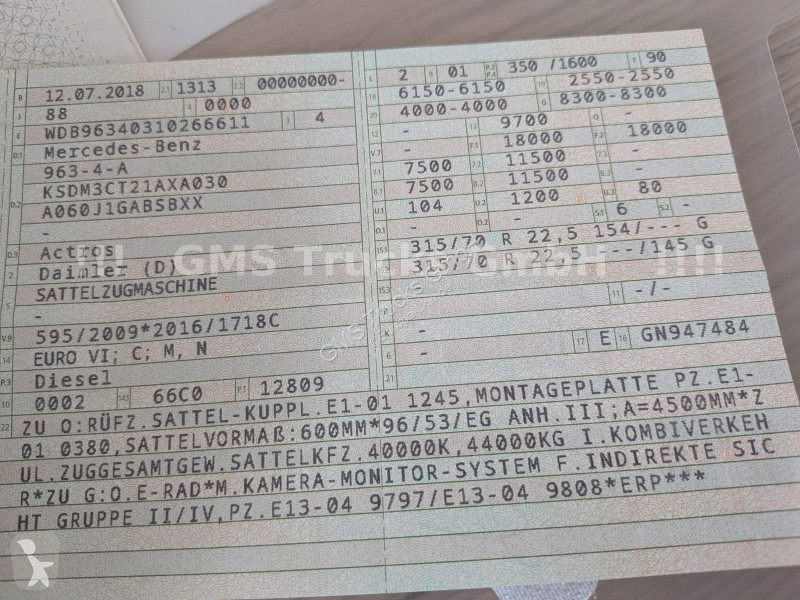 B 12.07.2018 2.1 1313 2.2 00000000-
J 88 4 0000
E WDB96340310266611 3 4
D.1 Mercedes-Benz
963-4-A
D.2 KSDM3CT21AXA030
A060J1GABSBXX
-
D.3 Actros
2 Daimler (D)
5 SATTELZUGMASCHINE
-
V.9 595/2009*2016/1718C
14 EURO VI; C; M, N
P.3 Diesel
10 0002 14.1 66C0 P.1 12809
L 2 9 01 P.2 P.4 350 /1600 T 90
18 6150-6150 19 2550-2550
20 4000-4000 G 8300-8300
12 - 13 9700 Q -
V.7 - F.1 18000 F.2 18000
7.1 7500 7.2 11500 7.3 -
8.1 7500 8.2 11500 8.3 -
U.1 104 U.2 1200 U.3 80
O.1 - O.2 - S.1 6 S.2 -
15.1 315/70 R 22,5 154/--- G
315/70 R 22,5 ---/145 G
15.3
11 -/-
K - 
6 - 17 E 16 GN947484
21
22 ZU O:RÜFZ.SATTEL-KUPPL.E1-01 1245,MONTAGEPLATTE PZ.E1-
01 0380,SATTELVORMAß:600MM*96/53/EG ANH.III;A=4500MM*Z
UL.ZUGGESAMTGEW.SATTELKFZ.40000K,44000KG I.KOMBIVERKEH
R*ZU G:O.E-RAD*M.KAMERA-MONITOR-SYSTEM F.INDIREKTE SIC
HT GRUPPE II/IV,PZ.E13-04 9797/E13-04 9808*ERP***
!!! GMS Trucks GmbH !!!!